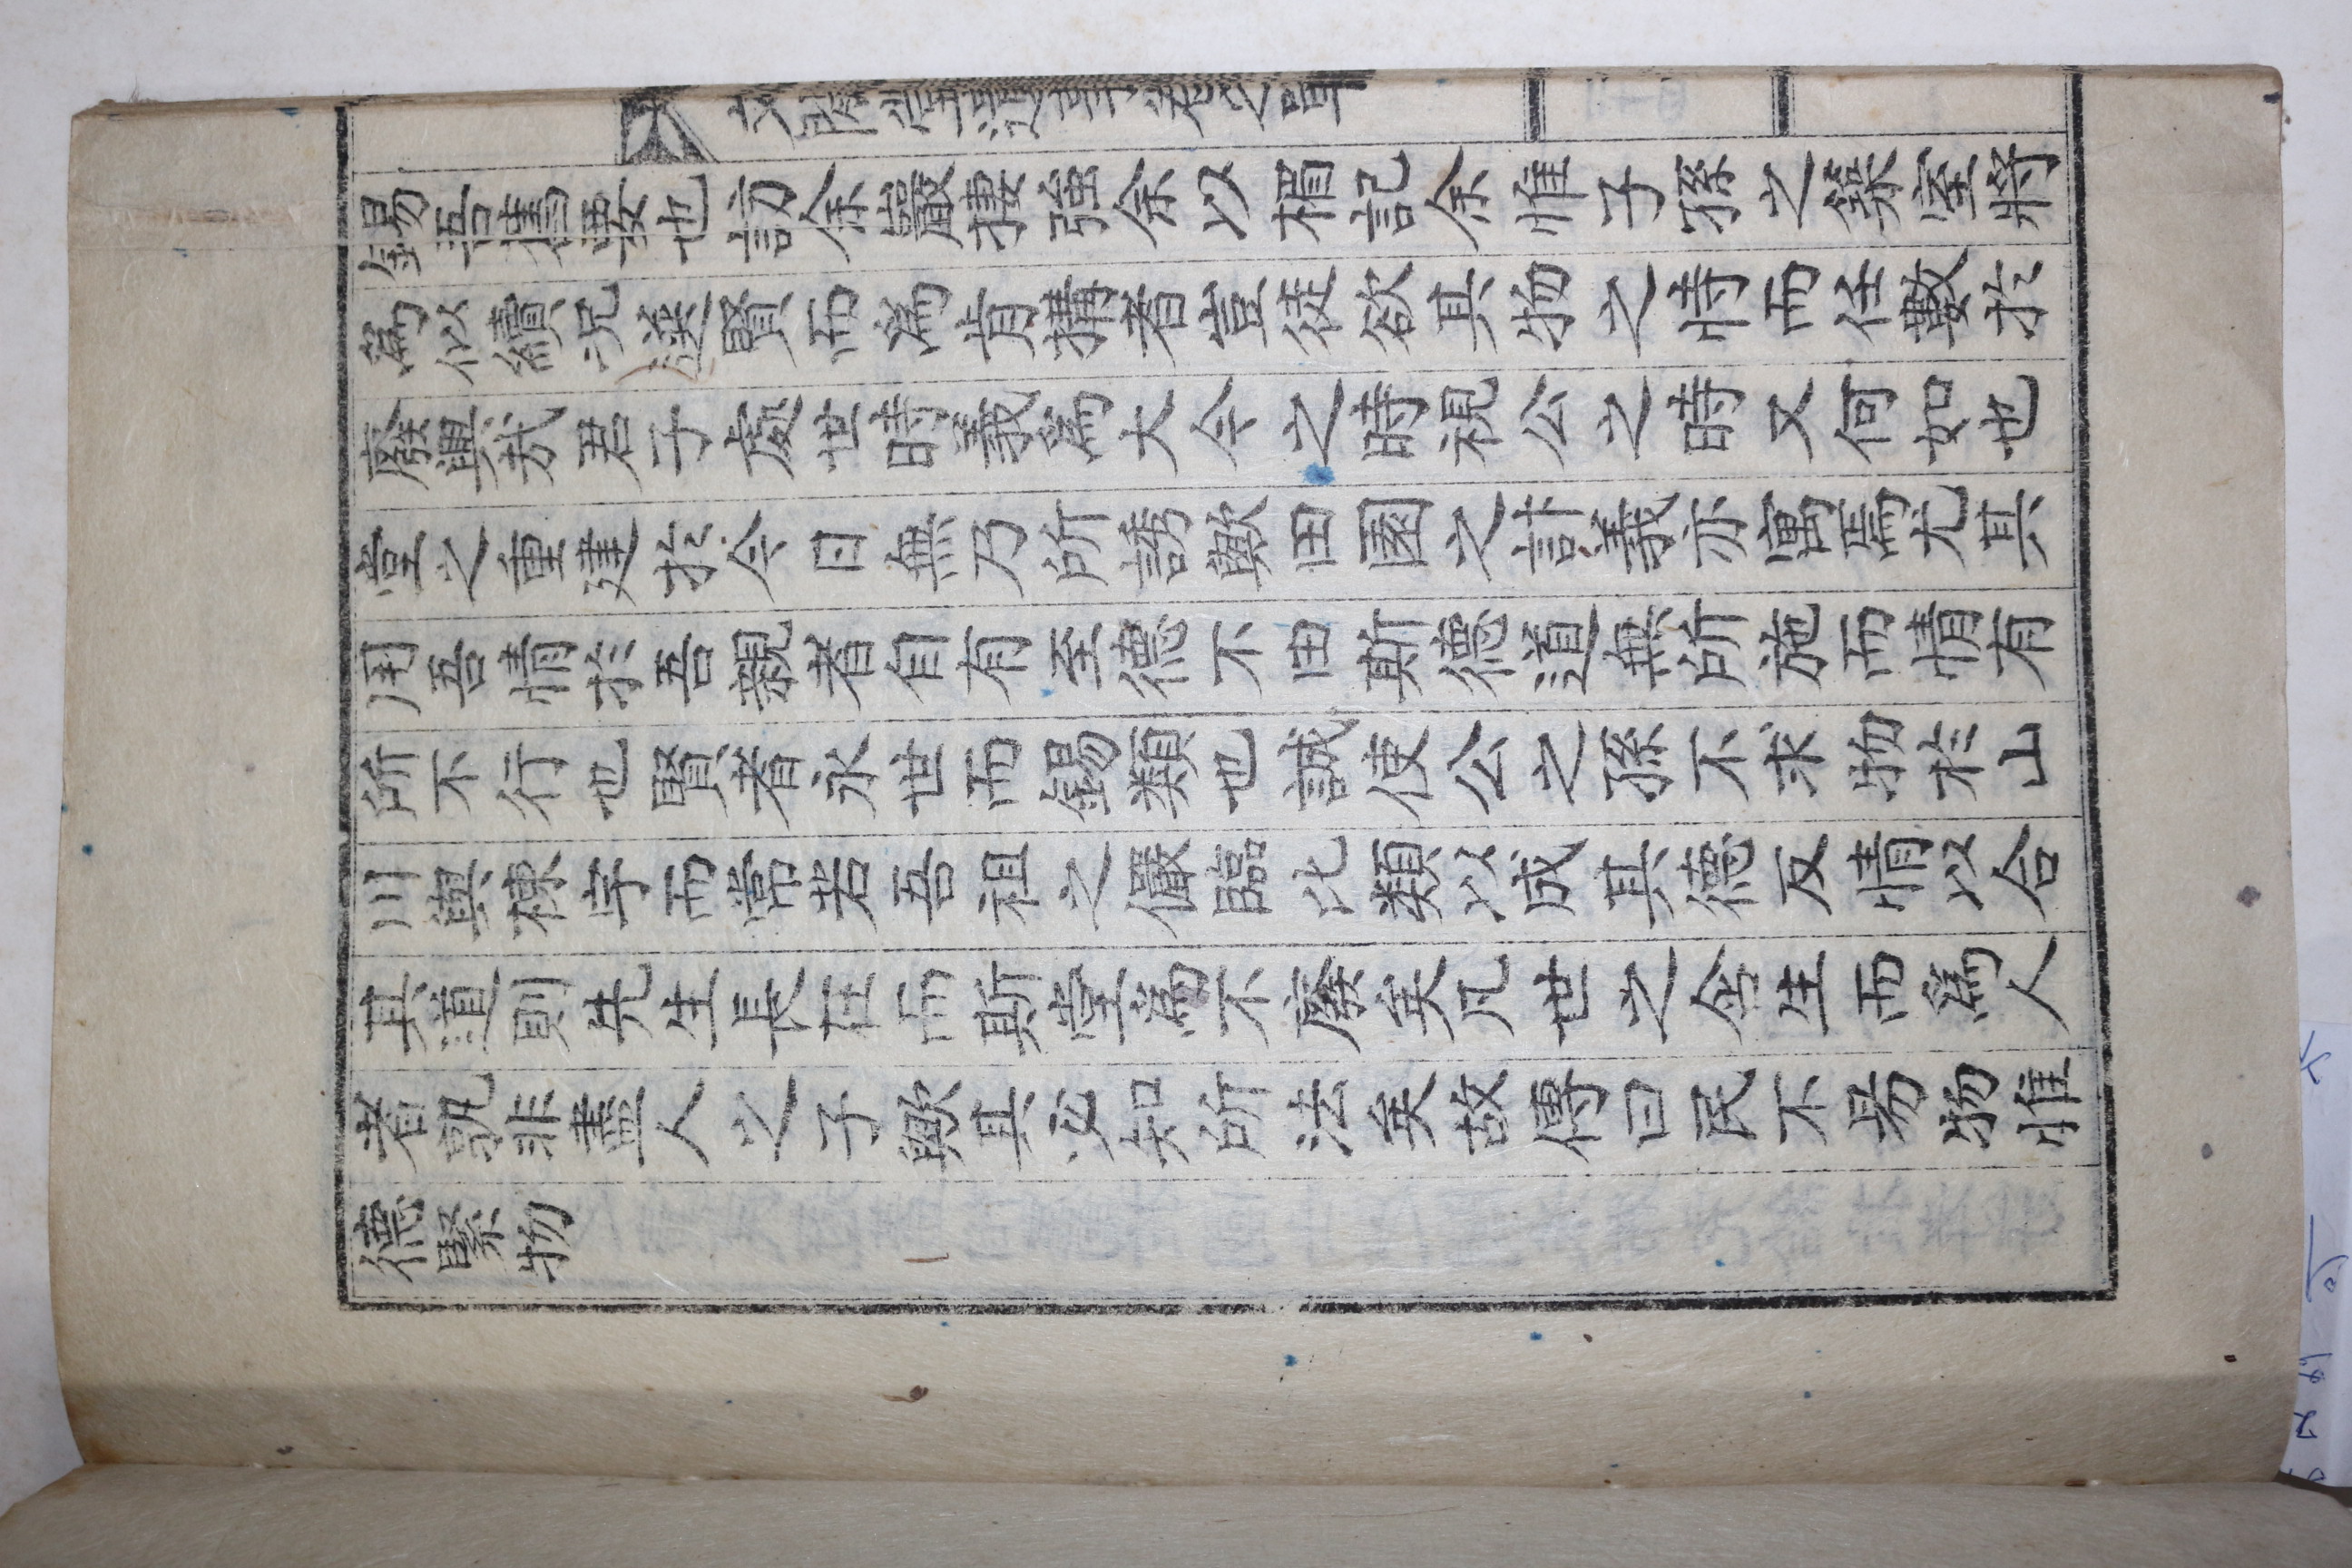 文閒堂遺事卷之單
錫吾舊要也訪余巖捿強余以楣記余惟子孫之築室將
爲似續况選賢而爲肯搆者豈徒欲其物之恃而任數於
廢興㢤君子處世時義爲大今之時視公之時又何如也
堂之重建於今日無乃所誘歟田園之計義亦寓焉尤其
用吾情於吾親者自有至德不由斯德道無所施而情有
所不行也賢者永世而錫類也誠使公之孫不求物於山
川與棟宇而常若吾祖之儼臨比類以成其德反情以合
其道則先生長在而斯堂爲不廢矣凡世之含生而爲人
者孰非盡人之子歟其必知所法矣故傳曰民不易物惟
德緊物